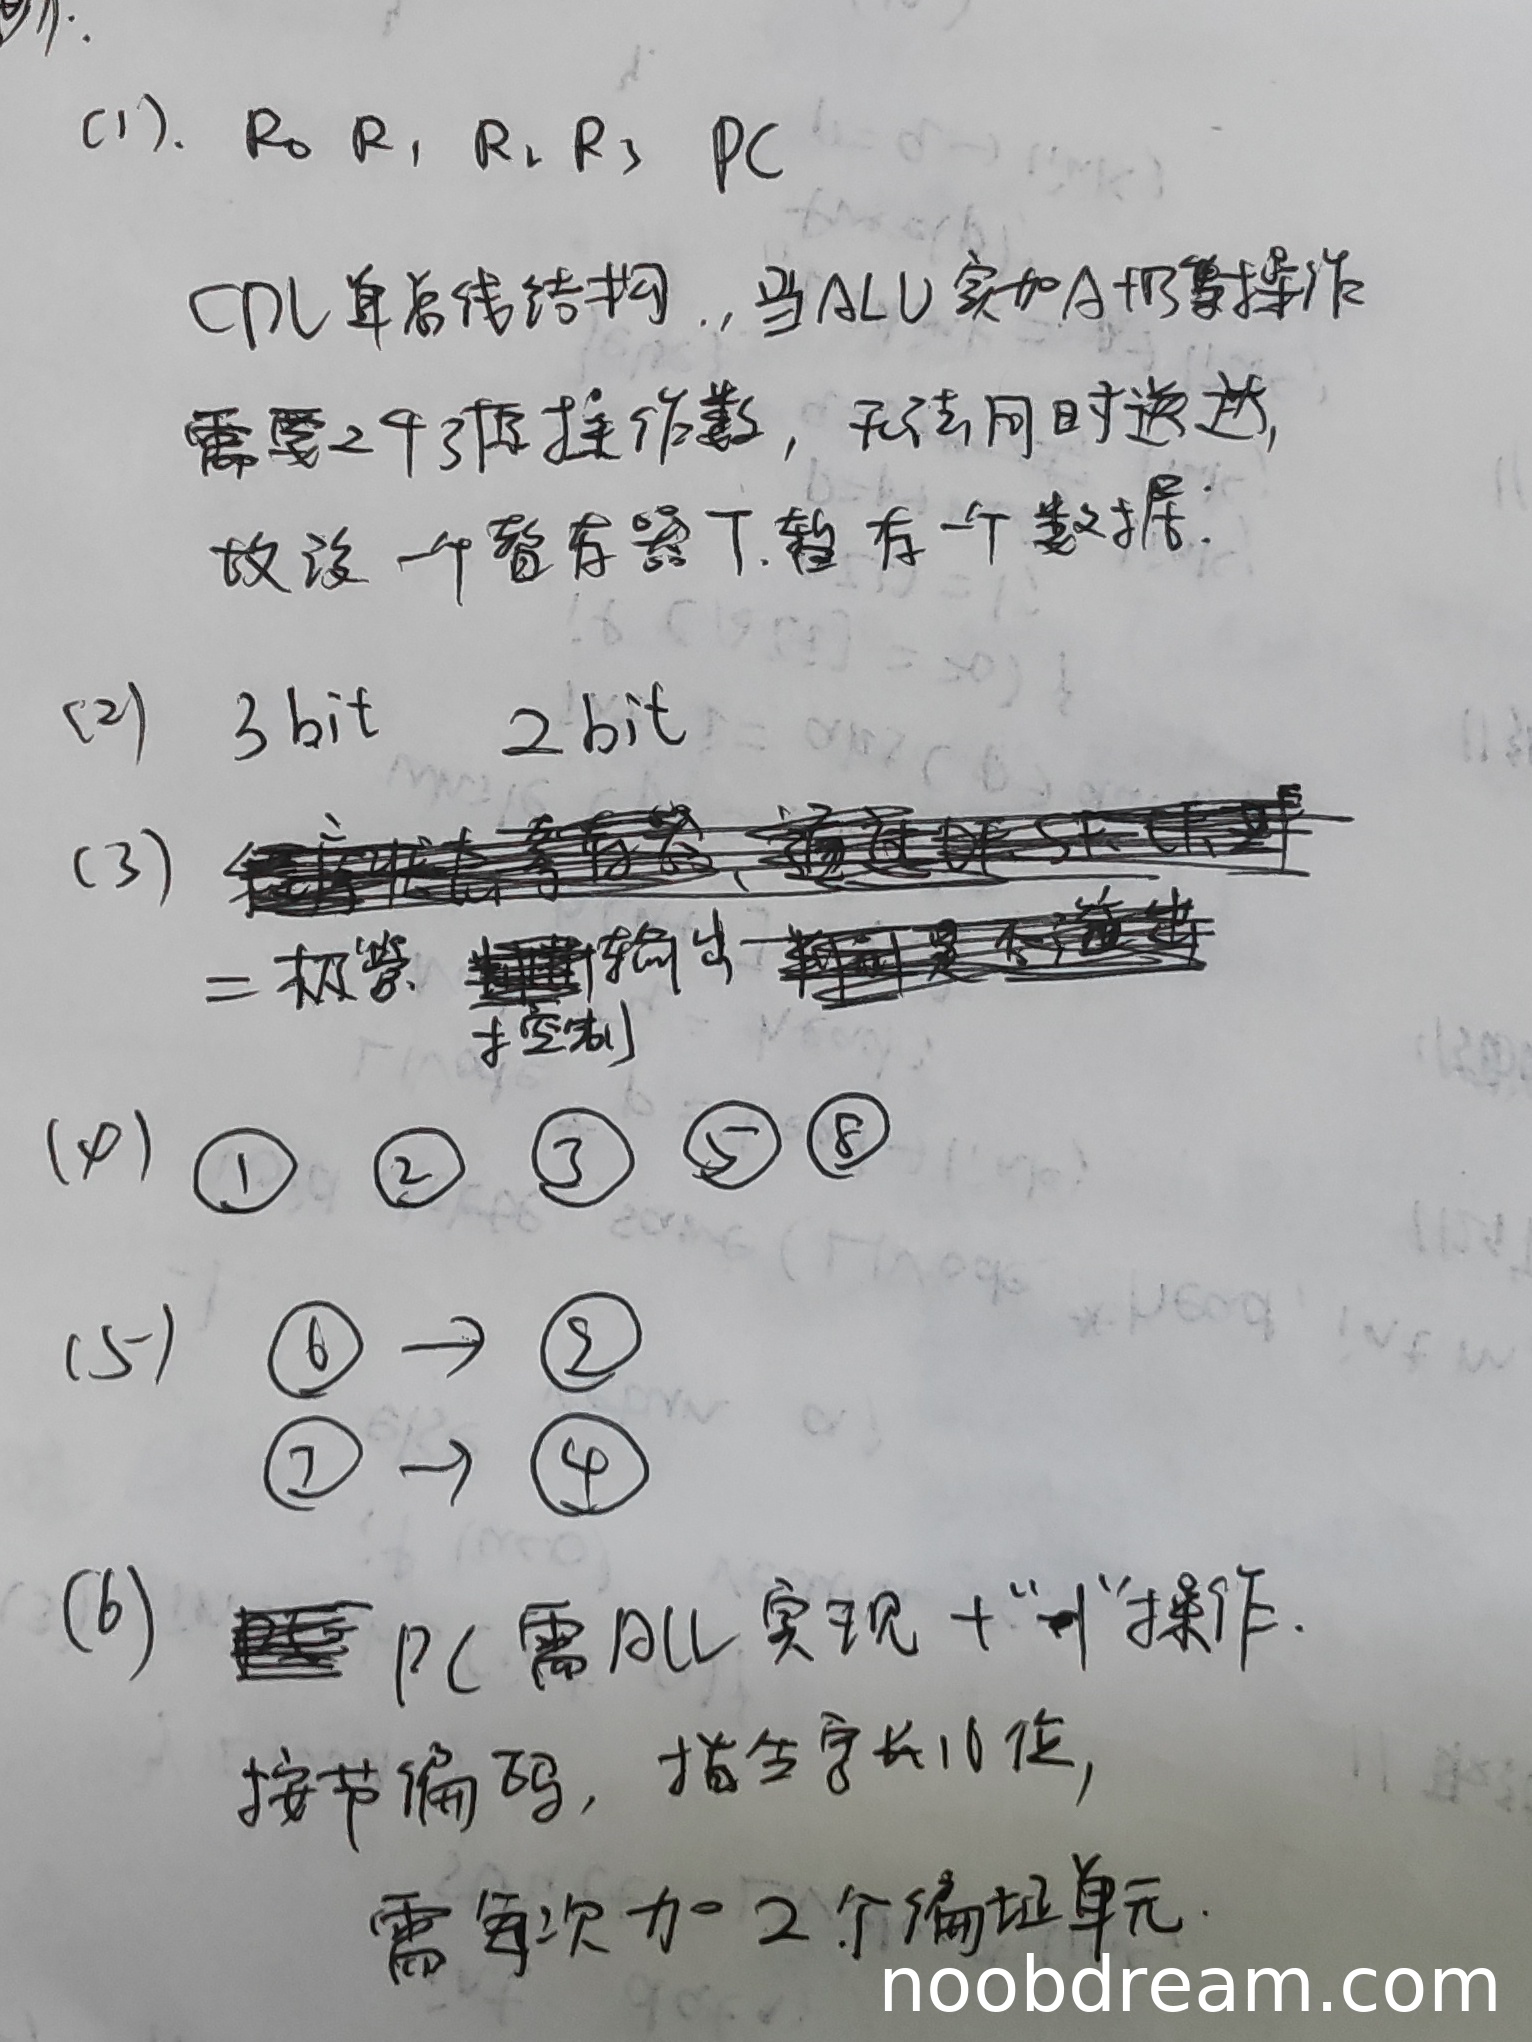 (1). R₀ R₁ R₂ R₃ PC
CPU单总线结构.,当ALU实加A+B等操作
需要2个源操作数,无法同时送达,
故设一个暂存器T.暂存一个数据.
(2) 3bit 2bit
(3)
二极管 输出
控制
(4) ① ② ③ ⑤ ⑧
(5) ⑥ →
⑦ → ④
(6) PC需ALU实现+"1"操作.
按节编码,指令字长16位,
需每次加2个编址单元.
noobdream.com